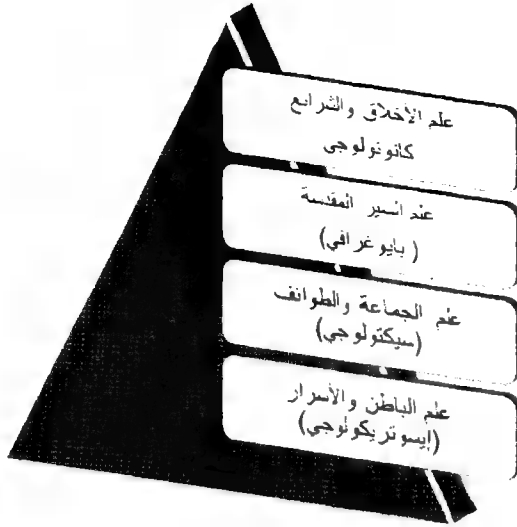 علم الأخلاق والشرائع
كانونولوجي
علم السير المقدسة
(بايوغرافي)
علم الجماعة والطوائف
(سيكتولوجي)
علم الباطن والأسرار
(إيسوتريكولوجي)